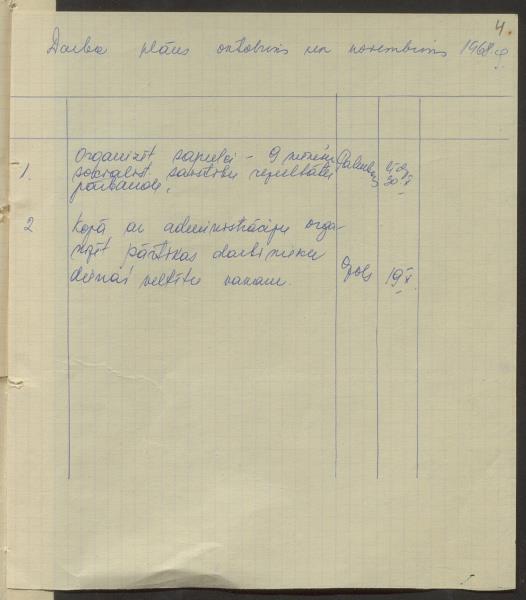 4.
Darba plāns oktobrim un novembrim 1968. g.
1.
Organizēt sapulci - 9 mēnešu
sociālist. saistību rezultātu
pārbaude.
līdz
30 X
2
Kopā ar administrāciju orga-
nizēt pārtikas darbinieku
dienai veltītu vakaru.
Ozols
19 X.